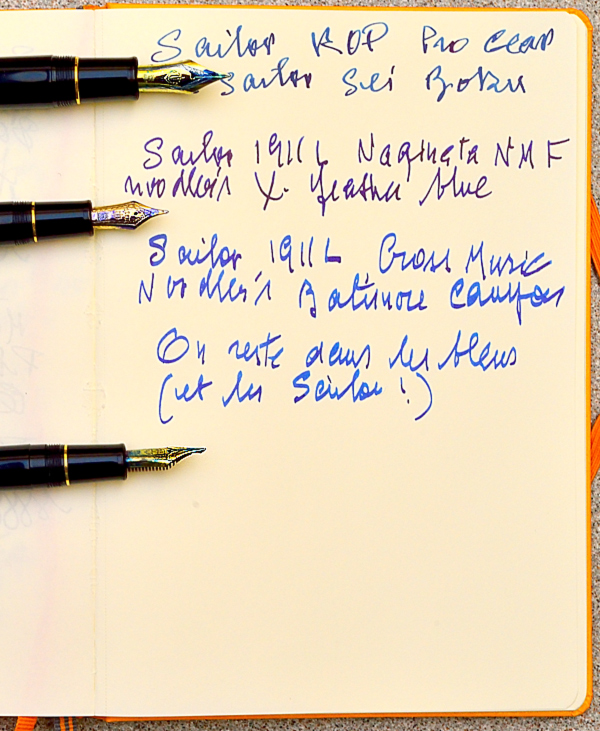 Sailor KOP Pro Gear
Sailor Sei Boku
Sailor 1911 L Naginata NMF
Noodler's X-Feather blue
Sailor 1911 L Cross Music
Noodler's Batimore Canyon
On reste dans les bleus
(et les Sailor !)